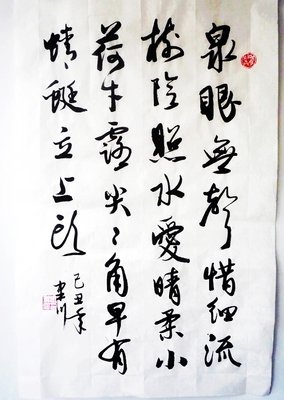 泉眼無聲惜細流
樹陰照水愛晴柔小
荷才露尖々角早有
蜻蜓立上頭
己丑年